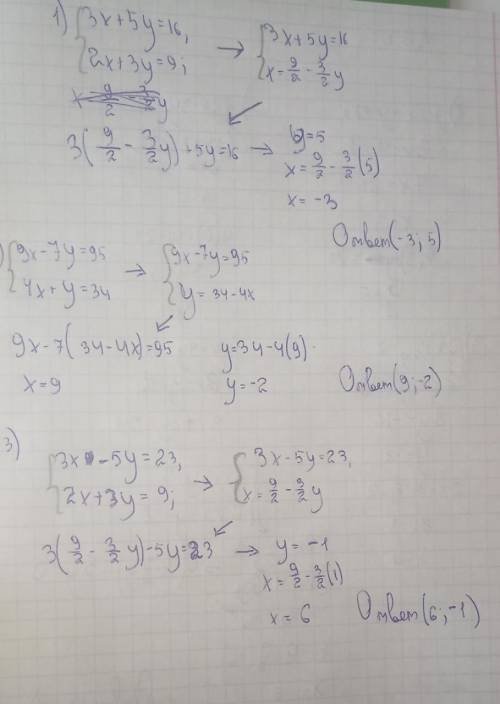 1) {3x+5y=16, → {3x+5y=16
{2x+3y=9; {x=9/2-3/2y
3(9/2-3/2y)+5y=16 → y=5
x=9/2-3/2(5)
x=-3
Ответ(-3;5)
{9x-7y=95 → {9x-7y=95
{4x+y=34 {y=34-4x
9x-7(34-4x)=95 y=34-4(9)
x=9 y=-2 Ответ(9;-2)
3) {3x-5y=23, → {3x-5y=23,
{2x+3y=9; {x=9/2-3/2y
3(9/2-3/2y)-5y=23 → y=-1
x=9/2-3/2(1)
x=6 Ответ(6;-1)